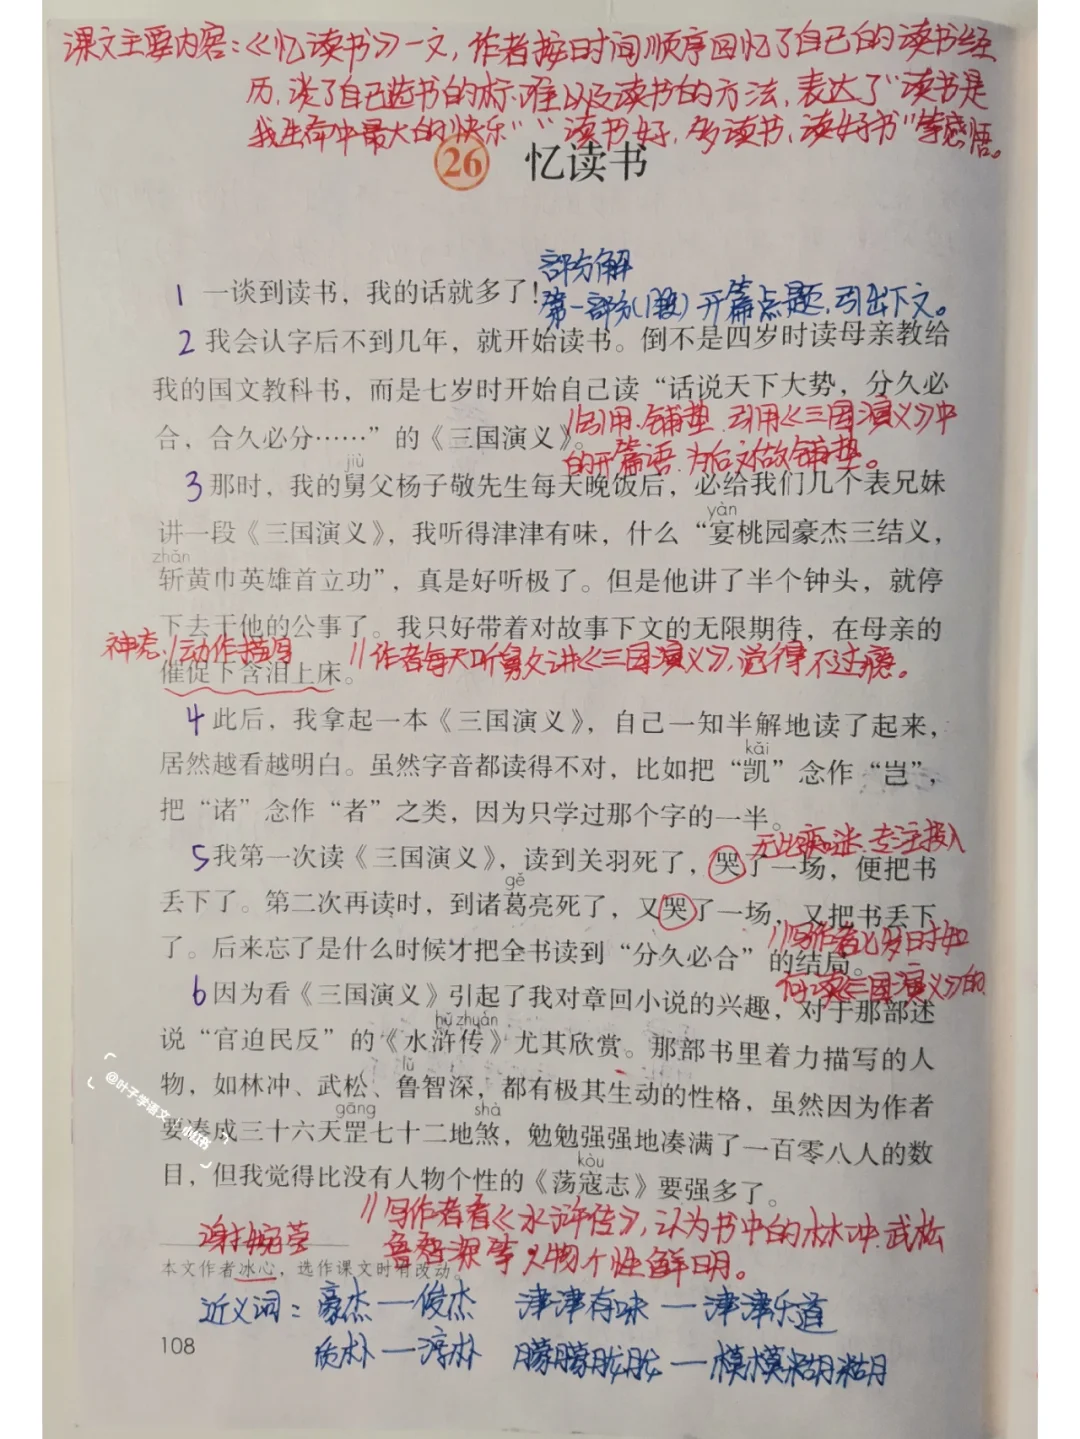 课文主要内容:《忆读书》一文,作者按时间顺序回忆了自己的读书经
历,谈了自己选书的标准以及读书的方法,表达了“读书是
我生命中最大的快乐”“读书好,多读书,读好书”等感悟。
26 忆读书
部分解
1 一谈到读书,我的话就多了!
第一部分(1段)开篇点题,引出下文。
2 我会认字后不到几年,就开始读书。倒不是四岁时读母亲教给
我的国文教科书,而是七岁时开始自己读“话说天下大势,分久必
合,合久必分……”的《三国演义》。
//引用.铺垫.引用《三国演义》中
的开篇语.为后文做铺垫。
jiù
3 那时,我的舅父杨子敬先生每天晚饭后,必给我们几个表兄妹
yàn
讲一段《三国演义》,我听得津津有味,什么“宴桃园豪杰三结义,
zhǎn
斩黄巾英雄首立功”,真是好听极了。但是他讲了半个钟头,就停
下去干他的公事了。我只好带着对故事下文的无限期待,在母亲的
神态//动作描写
//作者每天听舅父讲《三国演义》,觉得不过瘾。
催促下含泪上床。
4 此后,我拿起一本《三国演义》,自己一知半解地读了起来,
kǎi
居然越看越明白。虽然字音都读得不对,比如把“凯”念作“岂”,
把“诸”念作“者”之类,因为只学过那个字的一半。
无比痴迷.专注投入
5 我第一次读《三国演义》,读到关羽死了,哭了一场,便把书
gě
丢下了。第二次再读时,到诸葛亮死了,又哭了一场,又把书丢下
//写作者七岁时如
了。后来忘了是什么时候才把全书读到“分久必合”的结局。
何读《三国演义》的
6 因为看《三国演义》引起了我对章回小说的兴趣,对于那部述
hǔ zhuàn
说“官迫民反”的《水浒传》尤其欣赏。那部书里着力描写的人
lǔ
物,如林冲、武松、鲁智深,都有极其生动的性格,虽然因为作者
gāng shà
要凑成三十六天罡七十二地煞,勉勉强强地凑满了一百零八人的数
kòu
目,但我觉得比没有人物个性的《荡寇志》要强多了。
//写作者看《水浒传》,认为书中的林冲.武松
鲁智深等人物个性鲜明。
谢婉莹
本文作者冰心,选作课文时有改动。
近义词:豪杰—俊杰 津津有味—津津乐道
质朴—淳朴 朦朦胧胧—模模糊糊
108
@叶子学语文
小红书